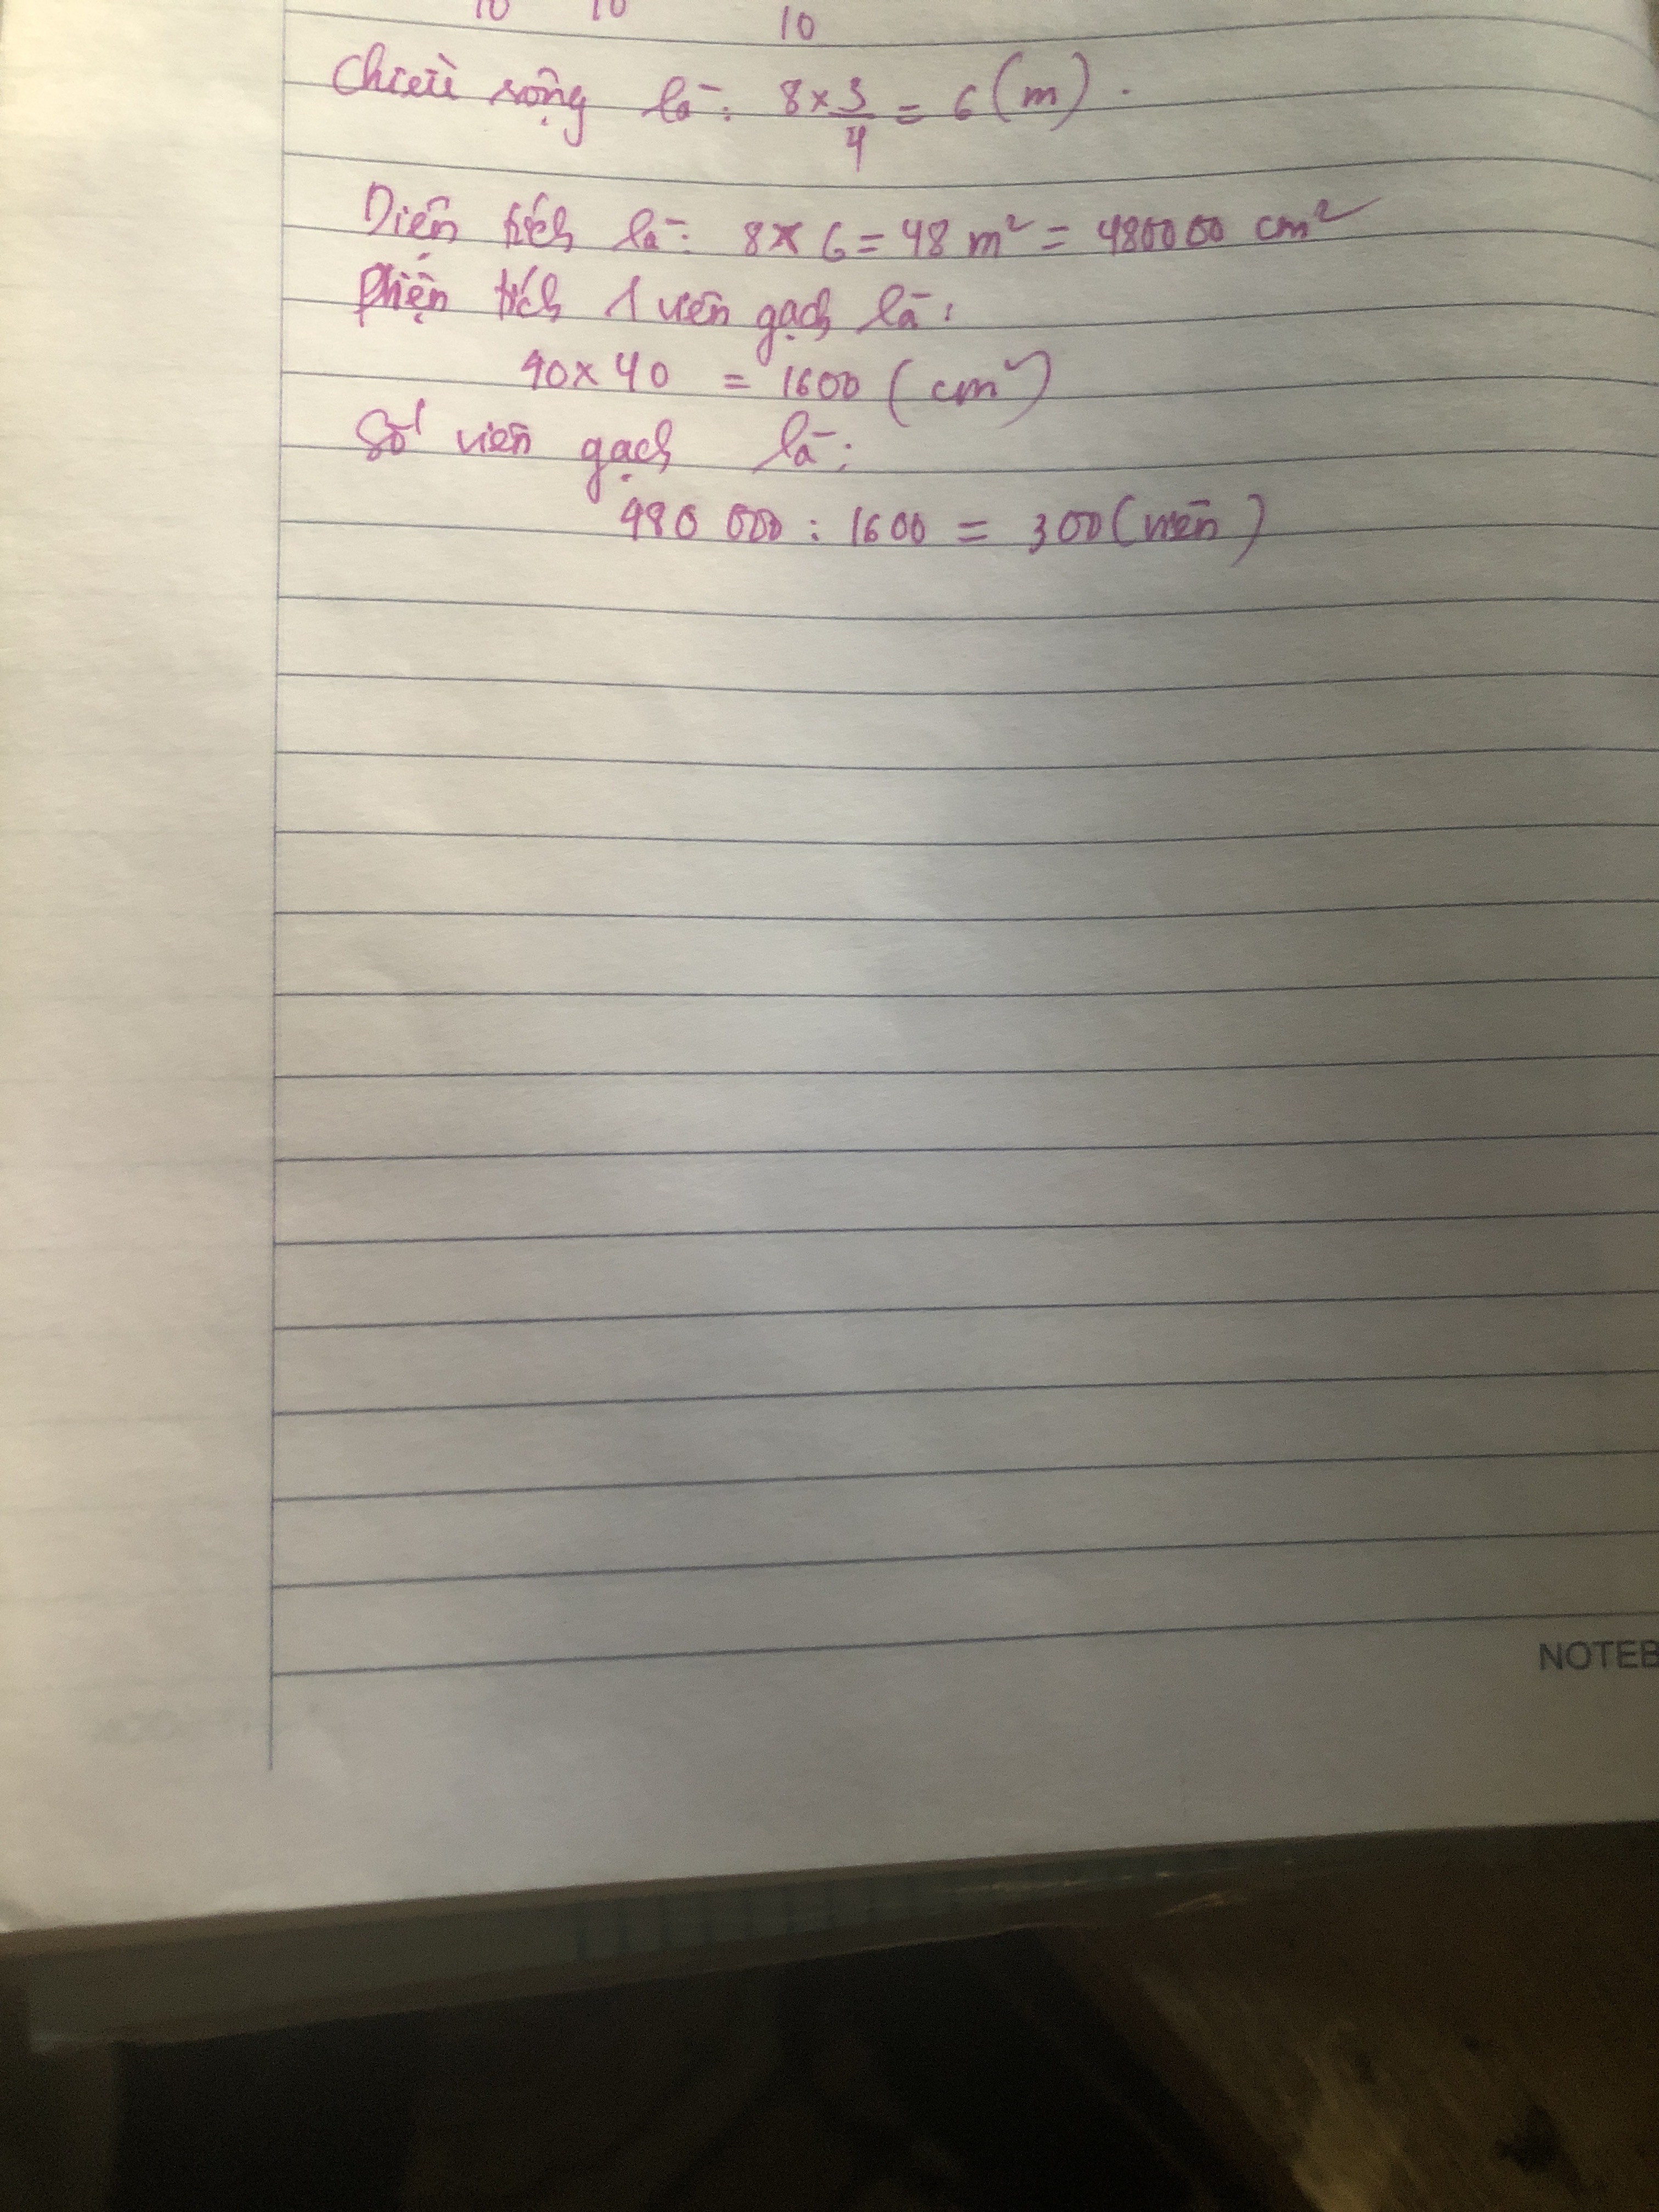 10 10 10
Chiều rộng là: 8 × 3/4 = 6 (m).
Diện tích là: 8 × 6 = 48 m² = 480000 cm²
Diện tích 1 viên gạch là:
40 × 40 = 1600 (cm²)
Số viên gạch là:
480 000 : 1600 = 300 (viên)
NOTEB